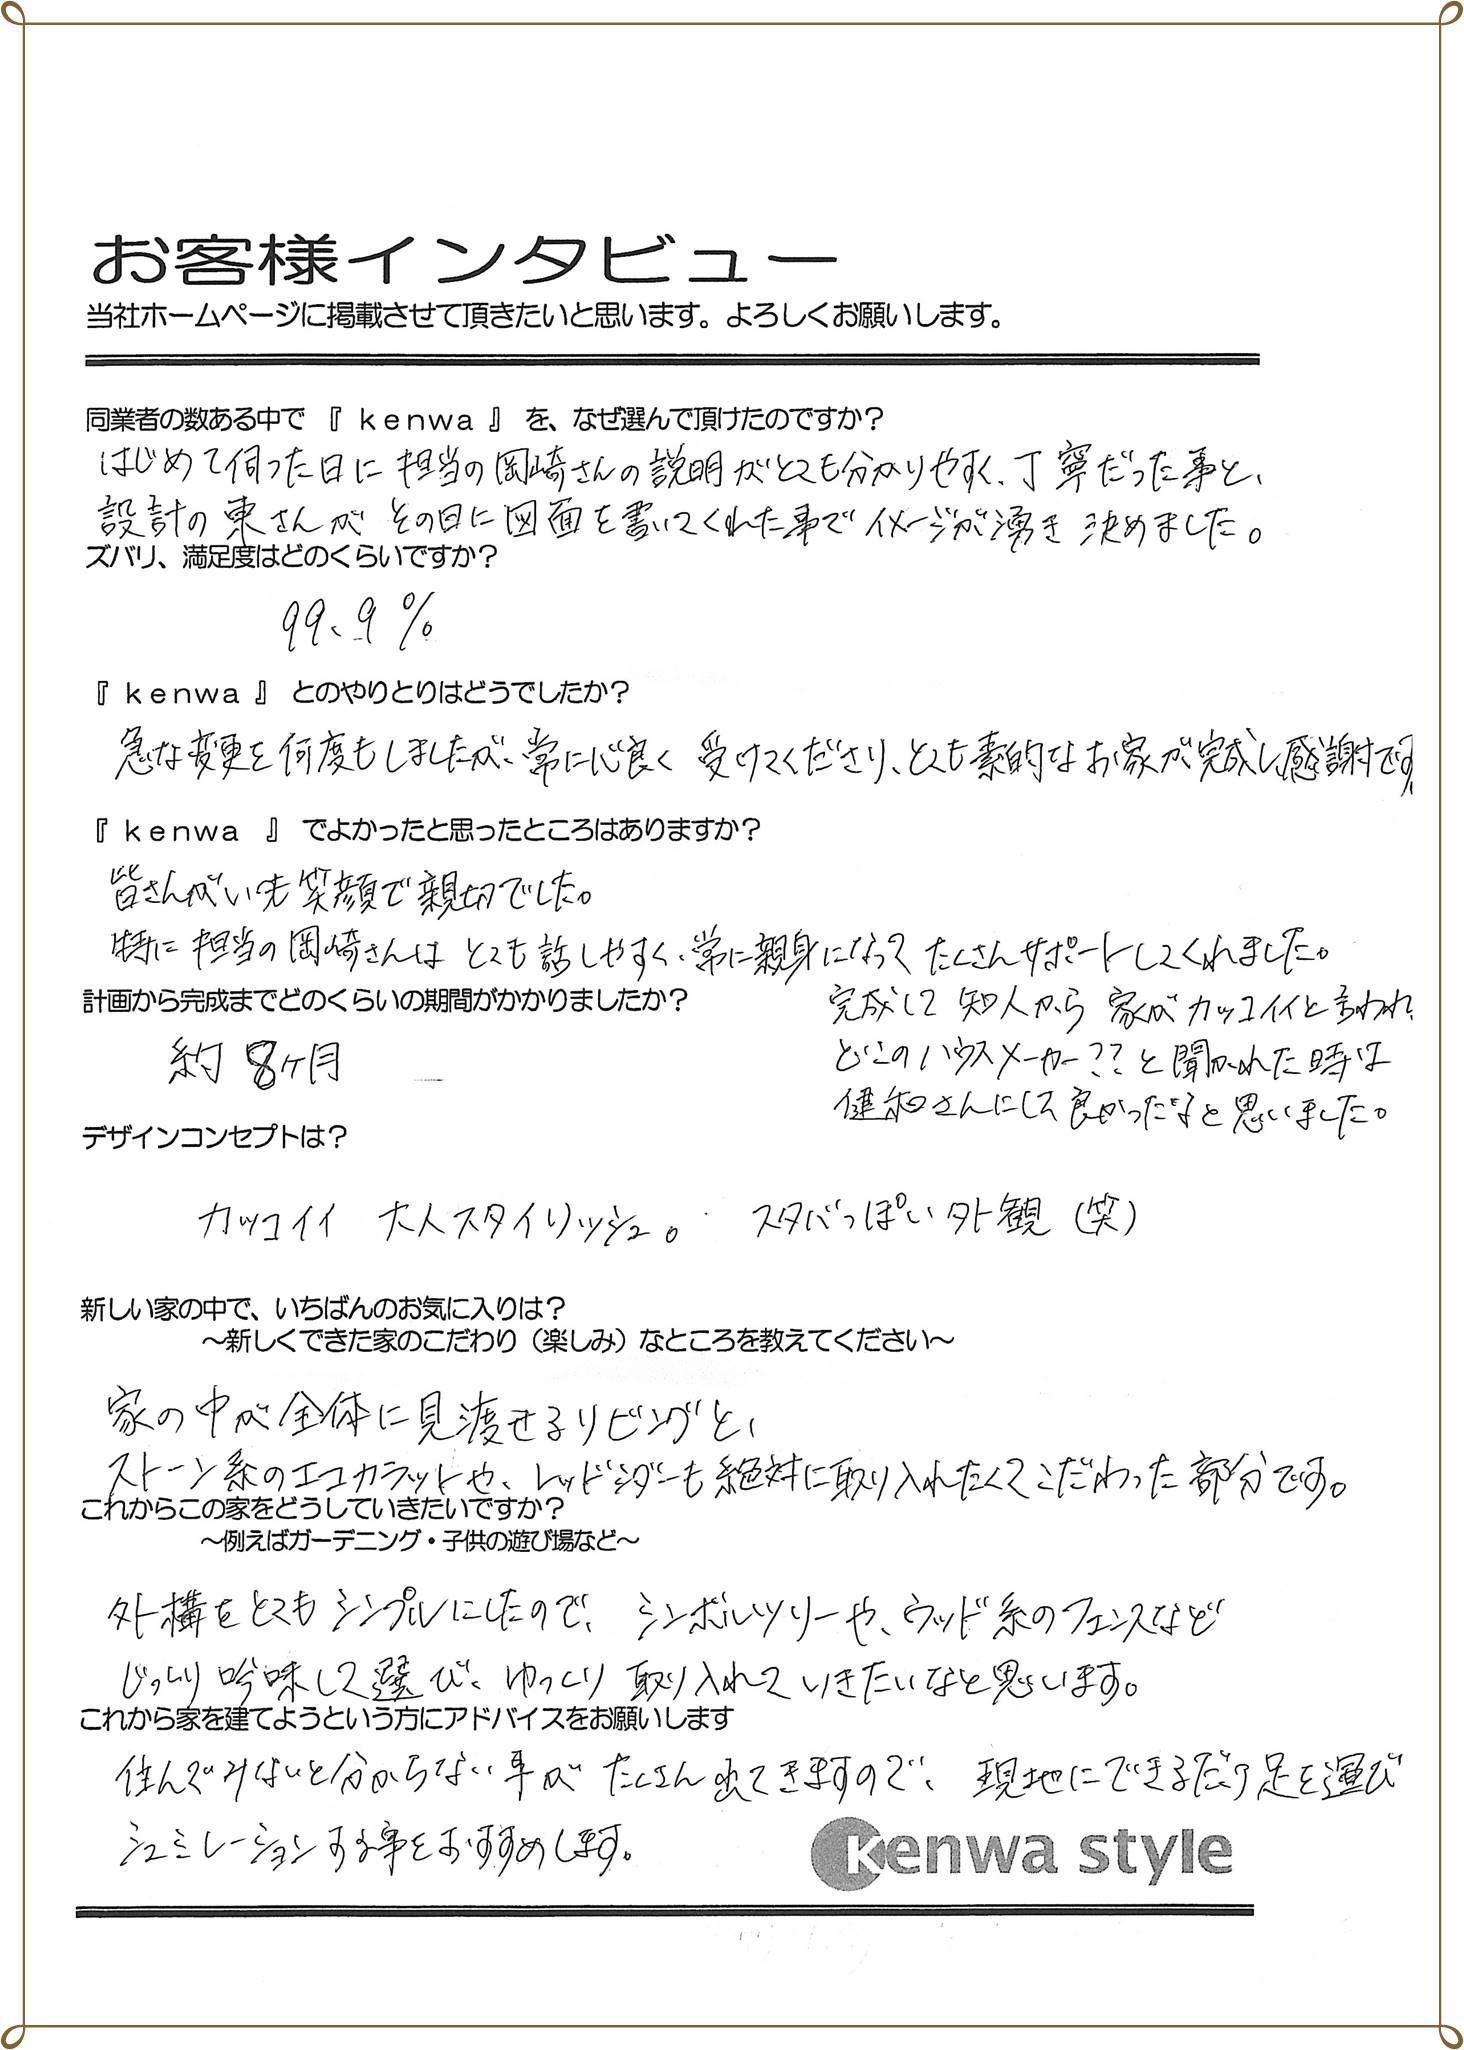 お客様インタビュー
当社ホームページに掲載させて頂きたいと思います。よろしくお願いします。
同業者の数ある中で 『 kenwa 』 を、なぜ選んで頂けたのですか？
はじめて伺った日に担当の岡崎さんの説明がとても分かりやすく、丁寧だった事と、
設計の東さんが その日に図面を書いてくれた事でイメージが湧き 決めました。
ズバリ、満足度はどのくらいですか？
99、9%
『 kenwa 』 とのやりとりはどうでしたか？
急な変更を何度もしましたが、常に心良く 受けてくださり、とても素的なお家が完成し、感謝です
『 kenwa 』 でよかったと思ったところはありますか？
皆さんがいつも笑顔で親切でした。
特に担当の岡崎さんは とても話しやすく、常に親身になって たくさんサポートしてくれました。
計画から完成までどのくらいの期間がかかりましたか？
完成して 知人から 家がカッコイイと言われ、
どこのハウスメーカー??と聞かれた時は
健和さんにして良かったなと思いました。
約8ヶ月
デザインコンセプトは？
カッコイイ 大人スタイリッシュ。 スタバっぽい外観（笑）
新しい家の中で、いちばんのお気に入りは？
～新しくできた家のこだわり（楽しみ）なところを教えてください～
家の中が全体に見渡せるリビングと、
ストーン系のエコカラットや、レッドシダーも絶対に取り入れたくてこだわった部分です。
これからこの家をどうしていきたいですか？
～例えばガーデニング・子供の遊び場など～
外構をとてもシンプルにしたので、シンボルツリーや、ウッド系のフェンスなど
じっくり吟味して選び、ゆっくり 取り入れていきたいなと思います。
これから家を建てようという方にアドバイスをお願いします
住んでみないと分からない事が たくさん出てきますので、現地にできるだけ足を運び
シュミレーションする事をおすすめします。
Kenwa style